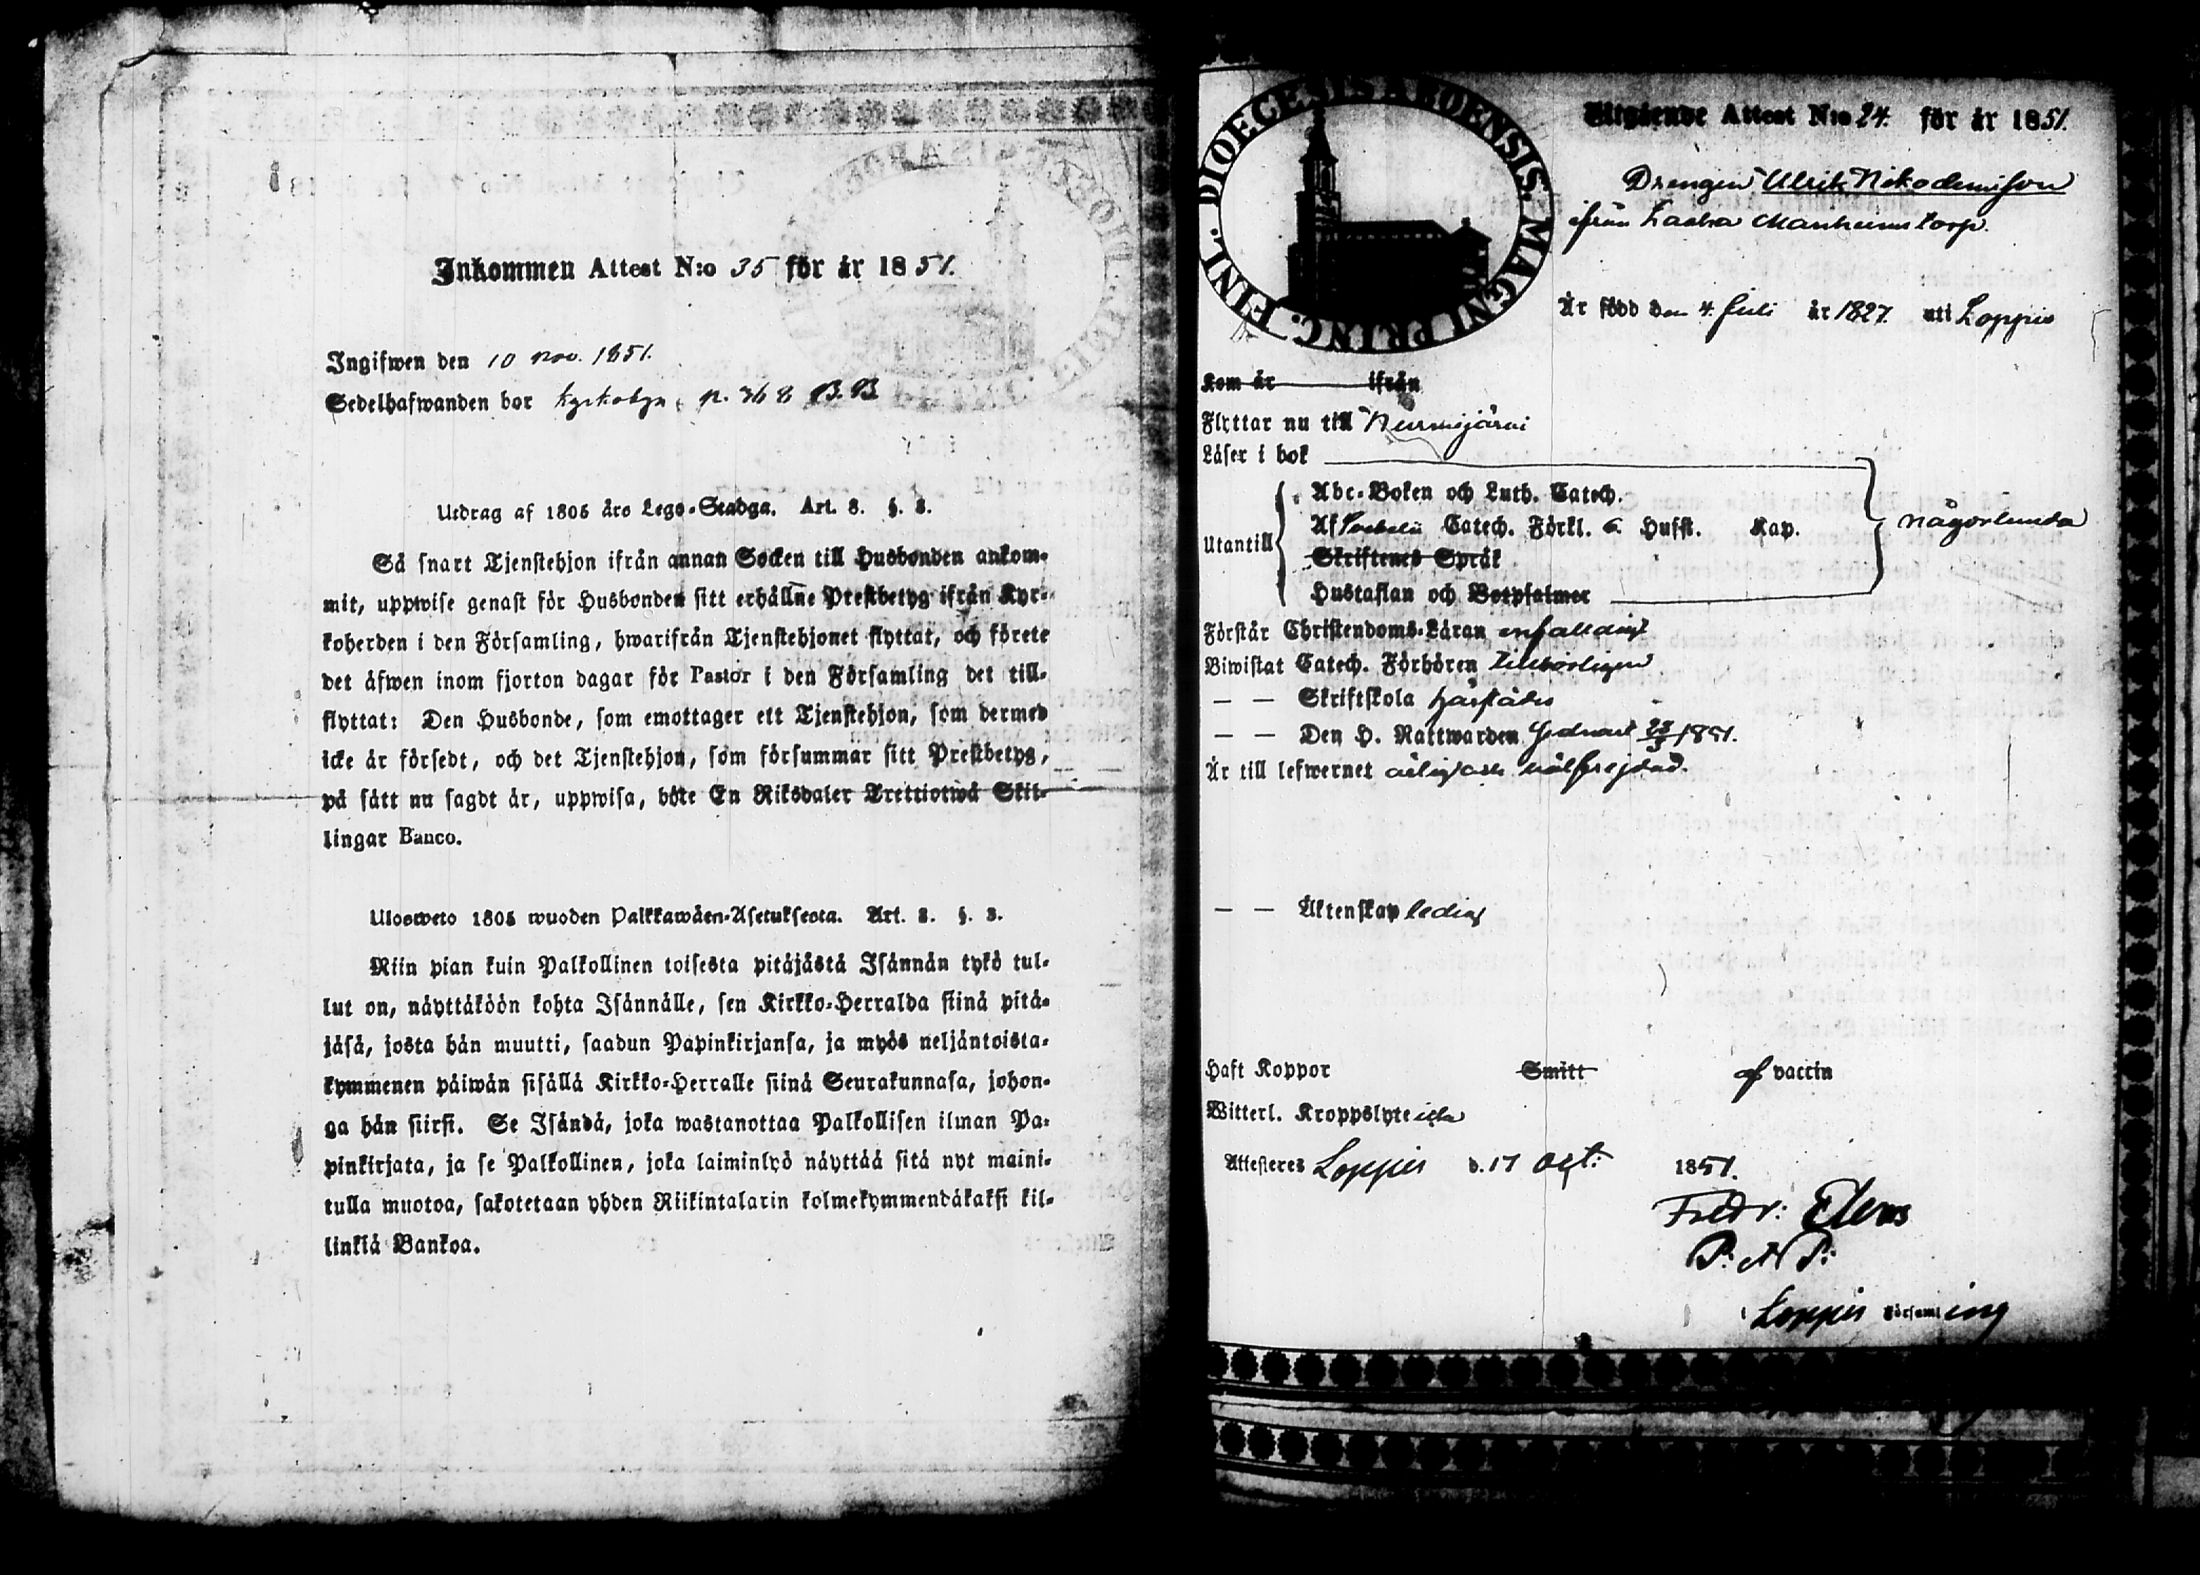 Inkommen Attest N:o 35 för år 1851.
Ingifwen den 10 nov. 1851.
Sedelhafwanden bor Kyrkobyn, p. 368 B.B.
Utdrag af 1805 års Lego-Stadga. Art. 8. §. 8.
Så snart Tjenstehjon ifrån annan Socken till Husbonden ankom-
mit, uppwise genast för Husbonden sitt erhållne Prestbetyg ifrån Kyr-
koherden i den Församling, hwarifrån Tjenstehjonet flyttat, och förete
det äfwen inom fjorton dagar för Pastor i den Församling det till-
flyttat: Den Husbonde, som emottager ett Tjenstehjon, som dermed
icke är försedt, och det Tjenstehjon, som försummar sitt Prestbetyg,
på sätt nu sagdt är, uppwisa, böte En Riksdaler Trettiotwå Skil-
lingar Banco.
Ulosweto 1805 wuoden Palkkawäen-Asetuksesta. Art. 8. §. 8.
Niin pian kuin Palkollinen toisesta pitäjästä Isännän tykö tul-
lut on, näyttäköön kohta Isännälle, sen Kirkko-Herralda siinä pitä-
jäsä, josta hän muutti, saadun Papinkirjansa, ja myös neljäntoista-
kymmenen päiwän sisällä Kirkko-Herralle siinä Seurakunnasa, johon-
ga hän siirsi. Se Isändä, joka wastanottaa Palkollisen ilman Pa-
pinkirjata, ja se Palkollinen, joka laiminlyö näyttää sitä nyt maini-
tulla muotoa, sakotetaan yhden Riikintalarin kolmekymmendäkaksi kil-
linkiä Bankoa.
DIOECESIS ABOENSIS. MAGNI PRINC. FINL.
Utgående Attest N:o 24. för år 1851.
Drengen Ulrik Nikodemison
ifrån Laaka Manheims torp.
Är född den 4 Juli år 1827. uti Loppis
Kom år ifrån
Flyttar nu till Nurmijärvi
Läser i bok
Abc-Boken och Luth. Catech.
Utantill Af Catech. Förkl. Husst. Kap. någorlunda
Skriftenes Språk
Hustaflan och Botpsalmer
Förstår Christendoms-Läran enfalldigt
Biwistat Catech. Förhören tillbörligen
— — Skriftskola härstädes
— — Den H. Nattwarden sednast 23/3 1851.
Är till lefwernet ärlig och välfrejdad.
— — Äktenskap ledig
Haft Koppor Smitt af vaccin
Witterl. Kroppslyte icke
Attesteres Loppis d. 17 Oct: 1851.
Fredr:
P: A P:
i Loppis Församling